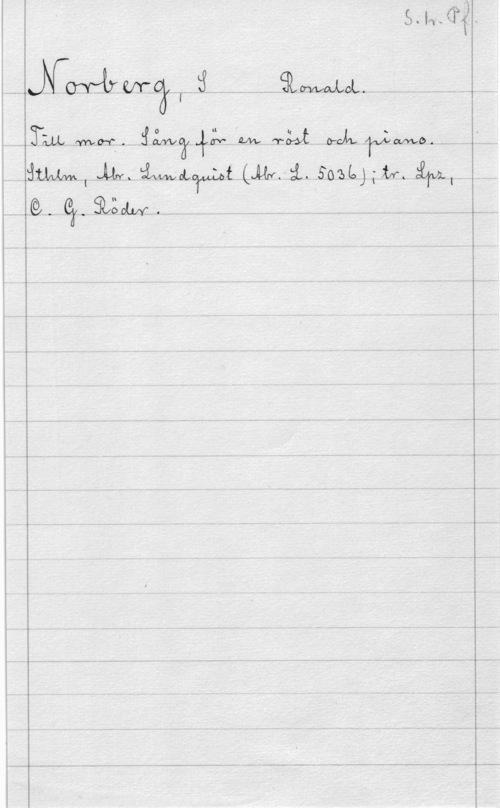 S. tr. Pf.
Norberg, S Ronald.
Till mor. Sång för en röst och piano.
Sthlm, Abr. Lundquist (Abr. L. 5036); tr. Lpz,
C. G. Röder.